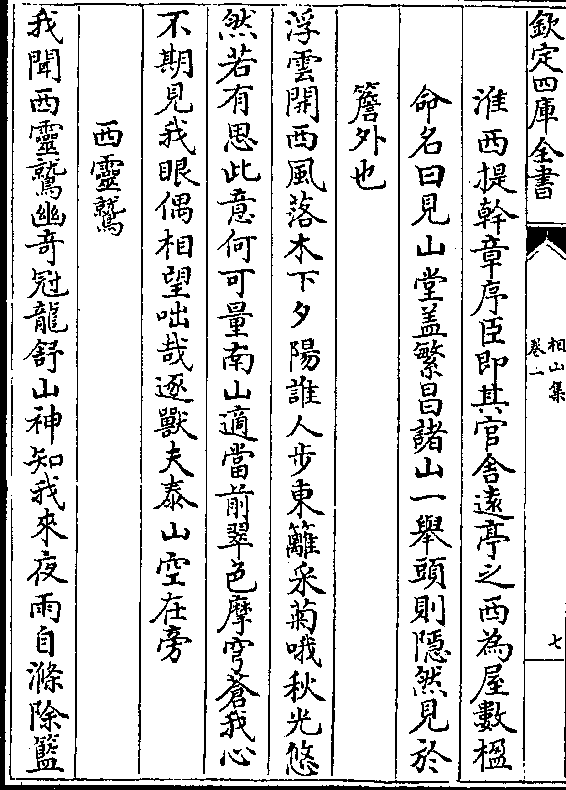 欽定四庫全書
相山集
卷一
七
淮西提幹章序臣即其官舍遠亭之西為屋數楹
命名曰見山堂盖繁昌諸山一舉頭則隱然見於
簷外也
浮雲開西風落木下夕陽誰人步東籬采菊哦秋光悠
然若有思此意何可量南山適當前翠色摩穹蒼我心
不期見我眼偶相望咄哉逐獸夫泰山空在旁
西靈鷲
我聞西靈鷲幽奇冠龍舒山神知我來夜雨自滌除籃